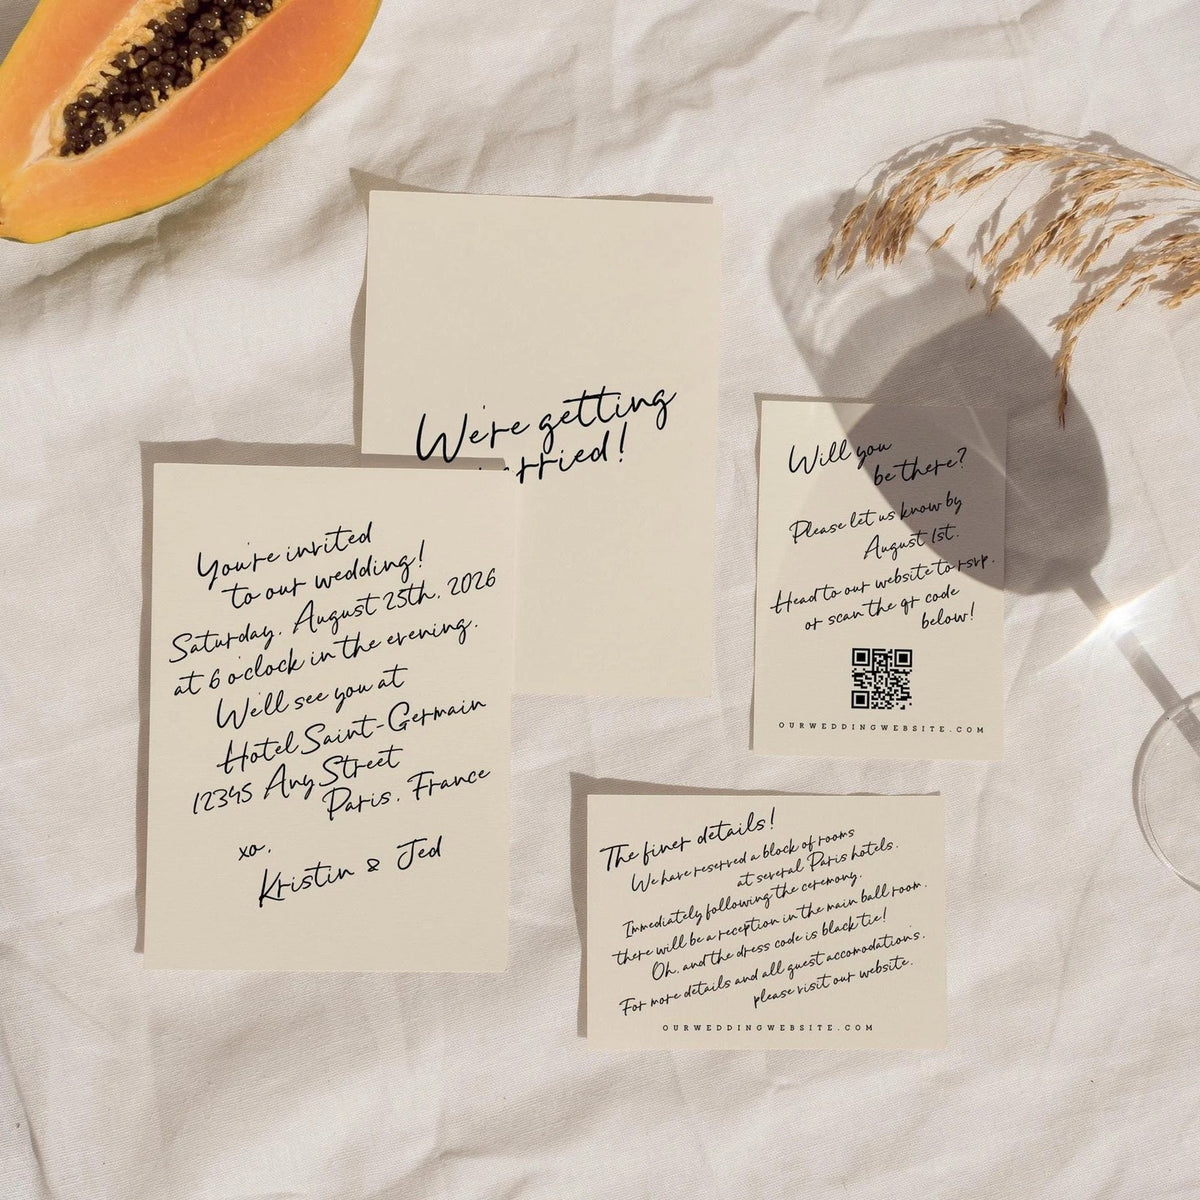 We're getting
You're invited
to our wedding!
Saturday, August 25th, 2026
at 6 o'clock in the evening.
We'll see you at
Hotel Saint-Germain
12345 Any Street
Paris, France
xo,
Kristin & Jed
Will you
be there?
Please let us know by
August 1st.
Head to our website to rsvp.
or scan the qr code
below!
OURWEDDINGWEBSITE.COM
The finer details!
We have reserved a block of rooms
at several Paris hotels.
Immediately following the ceremony,
there will be a reception in the main ball room.
Oh, and the dress code is black tie!
For more details and all guest accomodations,
please visit our website.
OURWEDDINGWEBSITE.COM